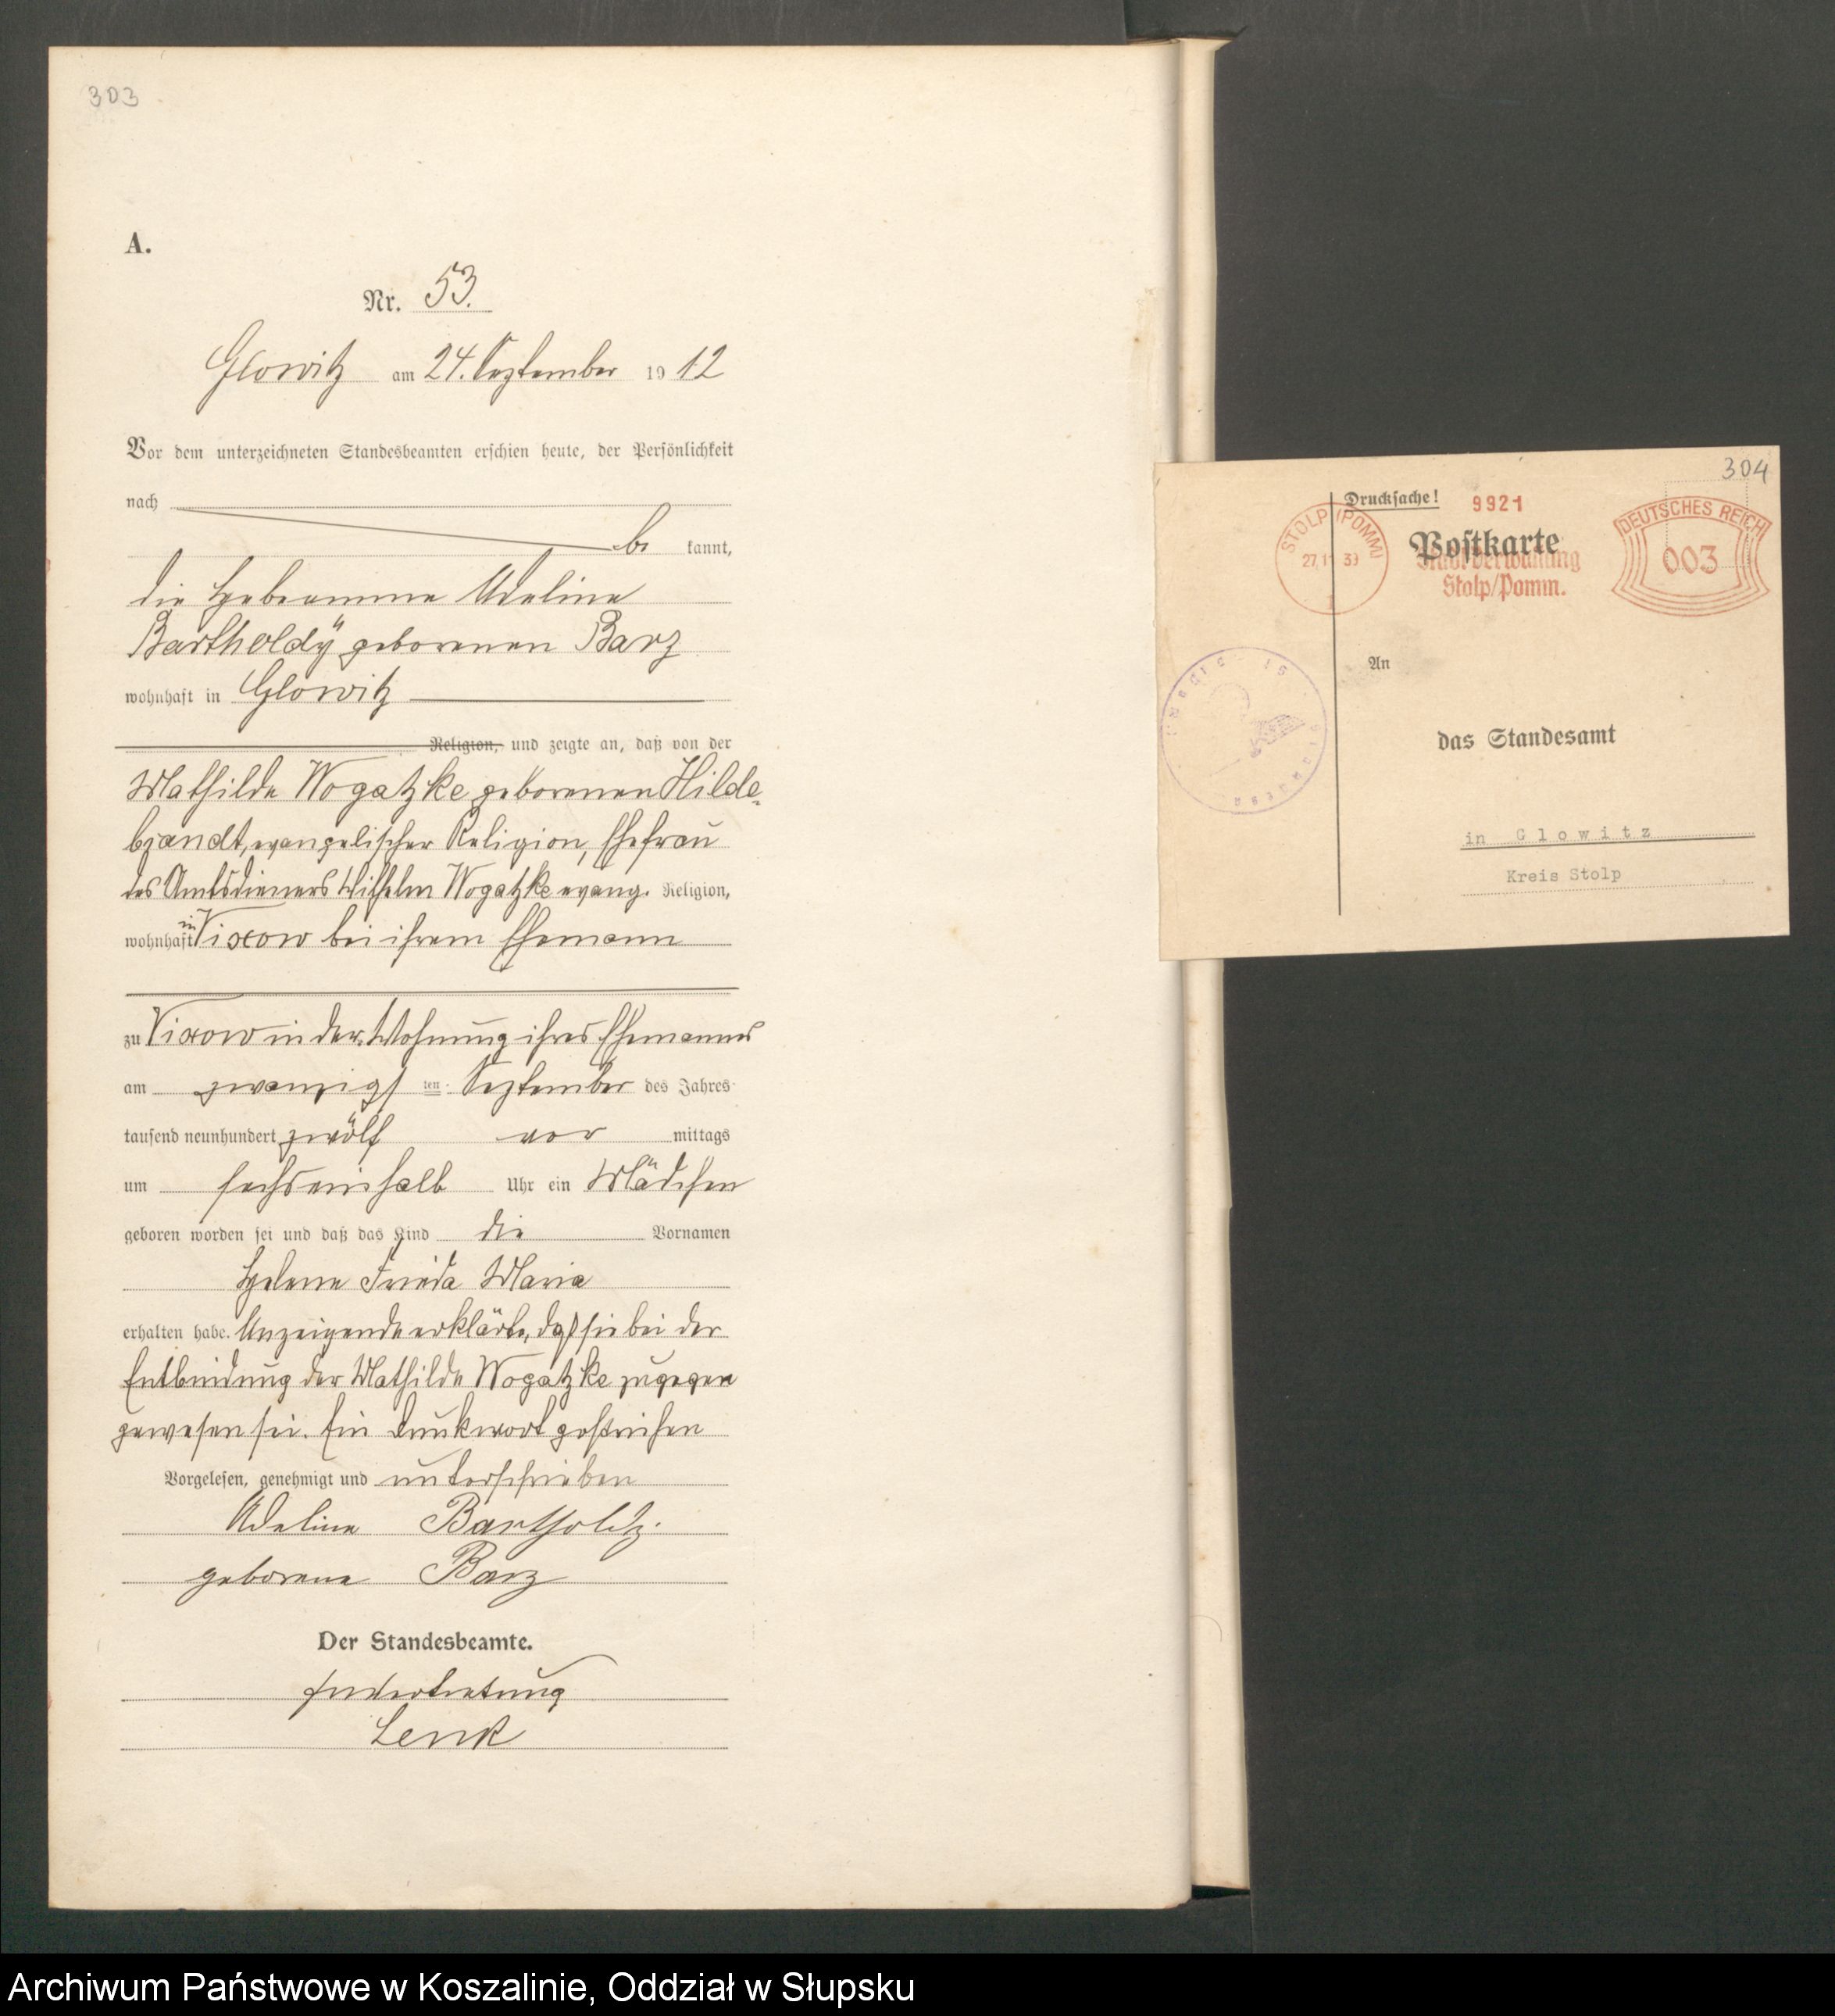 303
A.
Nr. 53.
Glowitz am 24. September 1912
Vor dem unterzeichneten Standesbeamten erschien heute, der Persönlichkeit
nach
be kannt,
die Hebeamme Adeline
Bartholdÿ geborenen Barz
wohnhaft in Glowitz
Religion, und zeigte an, daß von der
Mathilde Wogatzke geborenen Hilde-
brandt, evangelischer Religion, Ehefrau
des Amtsdieners Wilhelm Wogatzke evang. Religion,
wohnhaft in Vixow bei ihrem Ehemann
zu Vixow in der Wohnung ihres Ehemannes
am zwanzigsten September des Jahres
tausend neunhundert zwölf vor mittags
um sechseinhalb Uhr ein Mädchen
geboren worden sei und daß das Kind die Vornamen
Helene Frieda Maria
erhalten habe. Anzeigende erklärte, daß sie bei der
Entbindung der Mathilde Wogatzke zugegen
gewesen sei. Ein Druckwort gestrichen
Vorgelesen, genehmigt und unterschrieben
Adeline Bartholdy.
geborene Barz
Der Standesbeamte.
In Vertretung
Lenk
304
Drucksache!
9921
STOLP (POMM)
27.11.39
DEUTSCHES REICH
003
Postkarte
Stadtverwaltung
Stolp/Pomm.
An
das Standesamt
in Glowitz
Kreis Stolp
Archiwum Państwowe w Koszalinie, Oddział w Słupsku